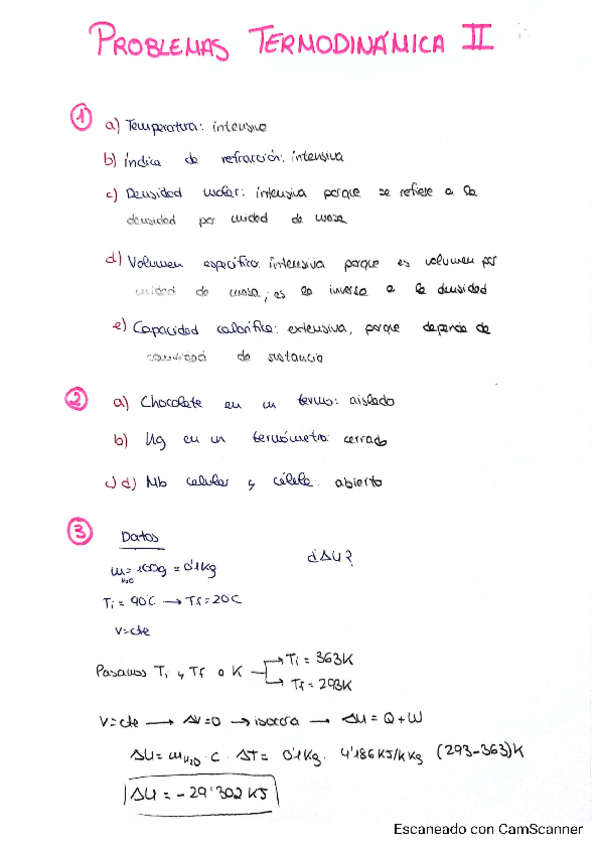 PROBLEMAS TERMODINÁMICA II
1
a) Temperatura: intensivo
b) Índice de refracción: intensiva
c) Densidad molar: intensiva porque se refiere a la
densidad por unidad de masa
d) Volumen específico: intensiva porque es volumen por
unidad de masa, es lo inverso a la densidad
e) Capacidad calorífica: extensiva, porque depende de
cantidad de sustancia
2
a) Chocolate en un termo: aislado
b) Hg en un termómetro: cerrado
c) d) Mb celular y célula: abierto
3
Datos
m H2O = 100g = 0'1Kg
¿ΔU?
Ti = 90°C → Tf = 20°C
V = cte
Pasamos Ti y Tf a K → Ti = 363K
→ Tf = 293K
V = cte → ΔV = 0 → isocora → ΔU = Q + W
ΔU = mH2O · C · ΔT = 0'1Kg · 4'186 KJ/K Kg (293-363)K
ΔU = -29'302 KJ
Escaneado con CamScanner